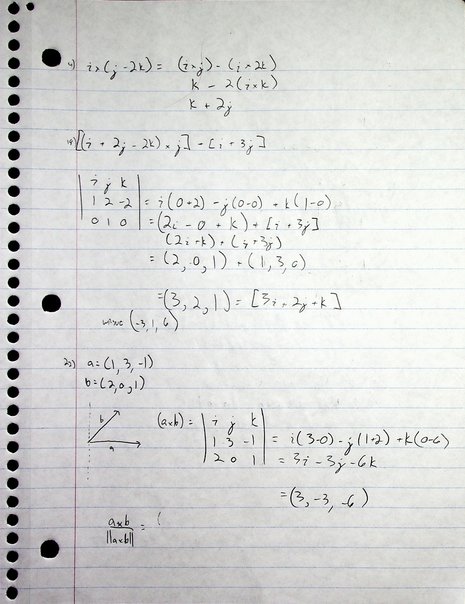 4) i×(j-2k) = (i×j) - (i×2k)
k - 2(i×k)
k + 2j
18) [(i + 2j - 2k) × j] × [i + 3j]
| i j k |
| 1 2 -2 | = i(0+2) - j(0-0) + k(1-0)
| 0 1 0 | = (2i - 0 + k) + [i + 3j]
(2i+k) + (i+3j)
= (2, 0, 1) + (1, 3, 0)
= (3, 2, 1) = [3i + 2j + k]
(-3, 1, 6)
a = (1, 3, -1)
b = (2, 0, 1)
b
a
(a×b) = | i j k |
| 1 3 -1 | = i(3-0) - j(1+2) + k(0-6)
| 2 0 1 | = 3i - 3j - 6k
= (3, -3, -6)
a×b / ||a×b|| = (